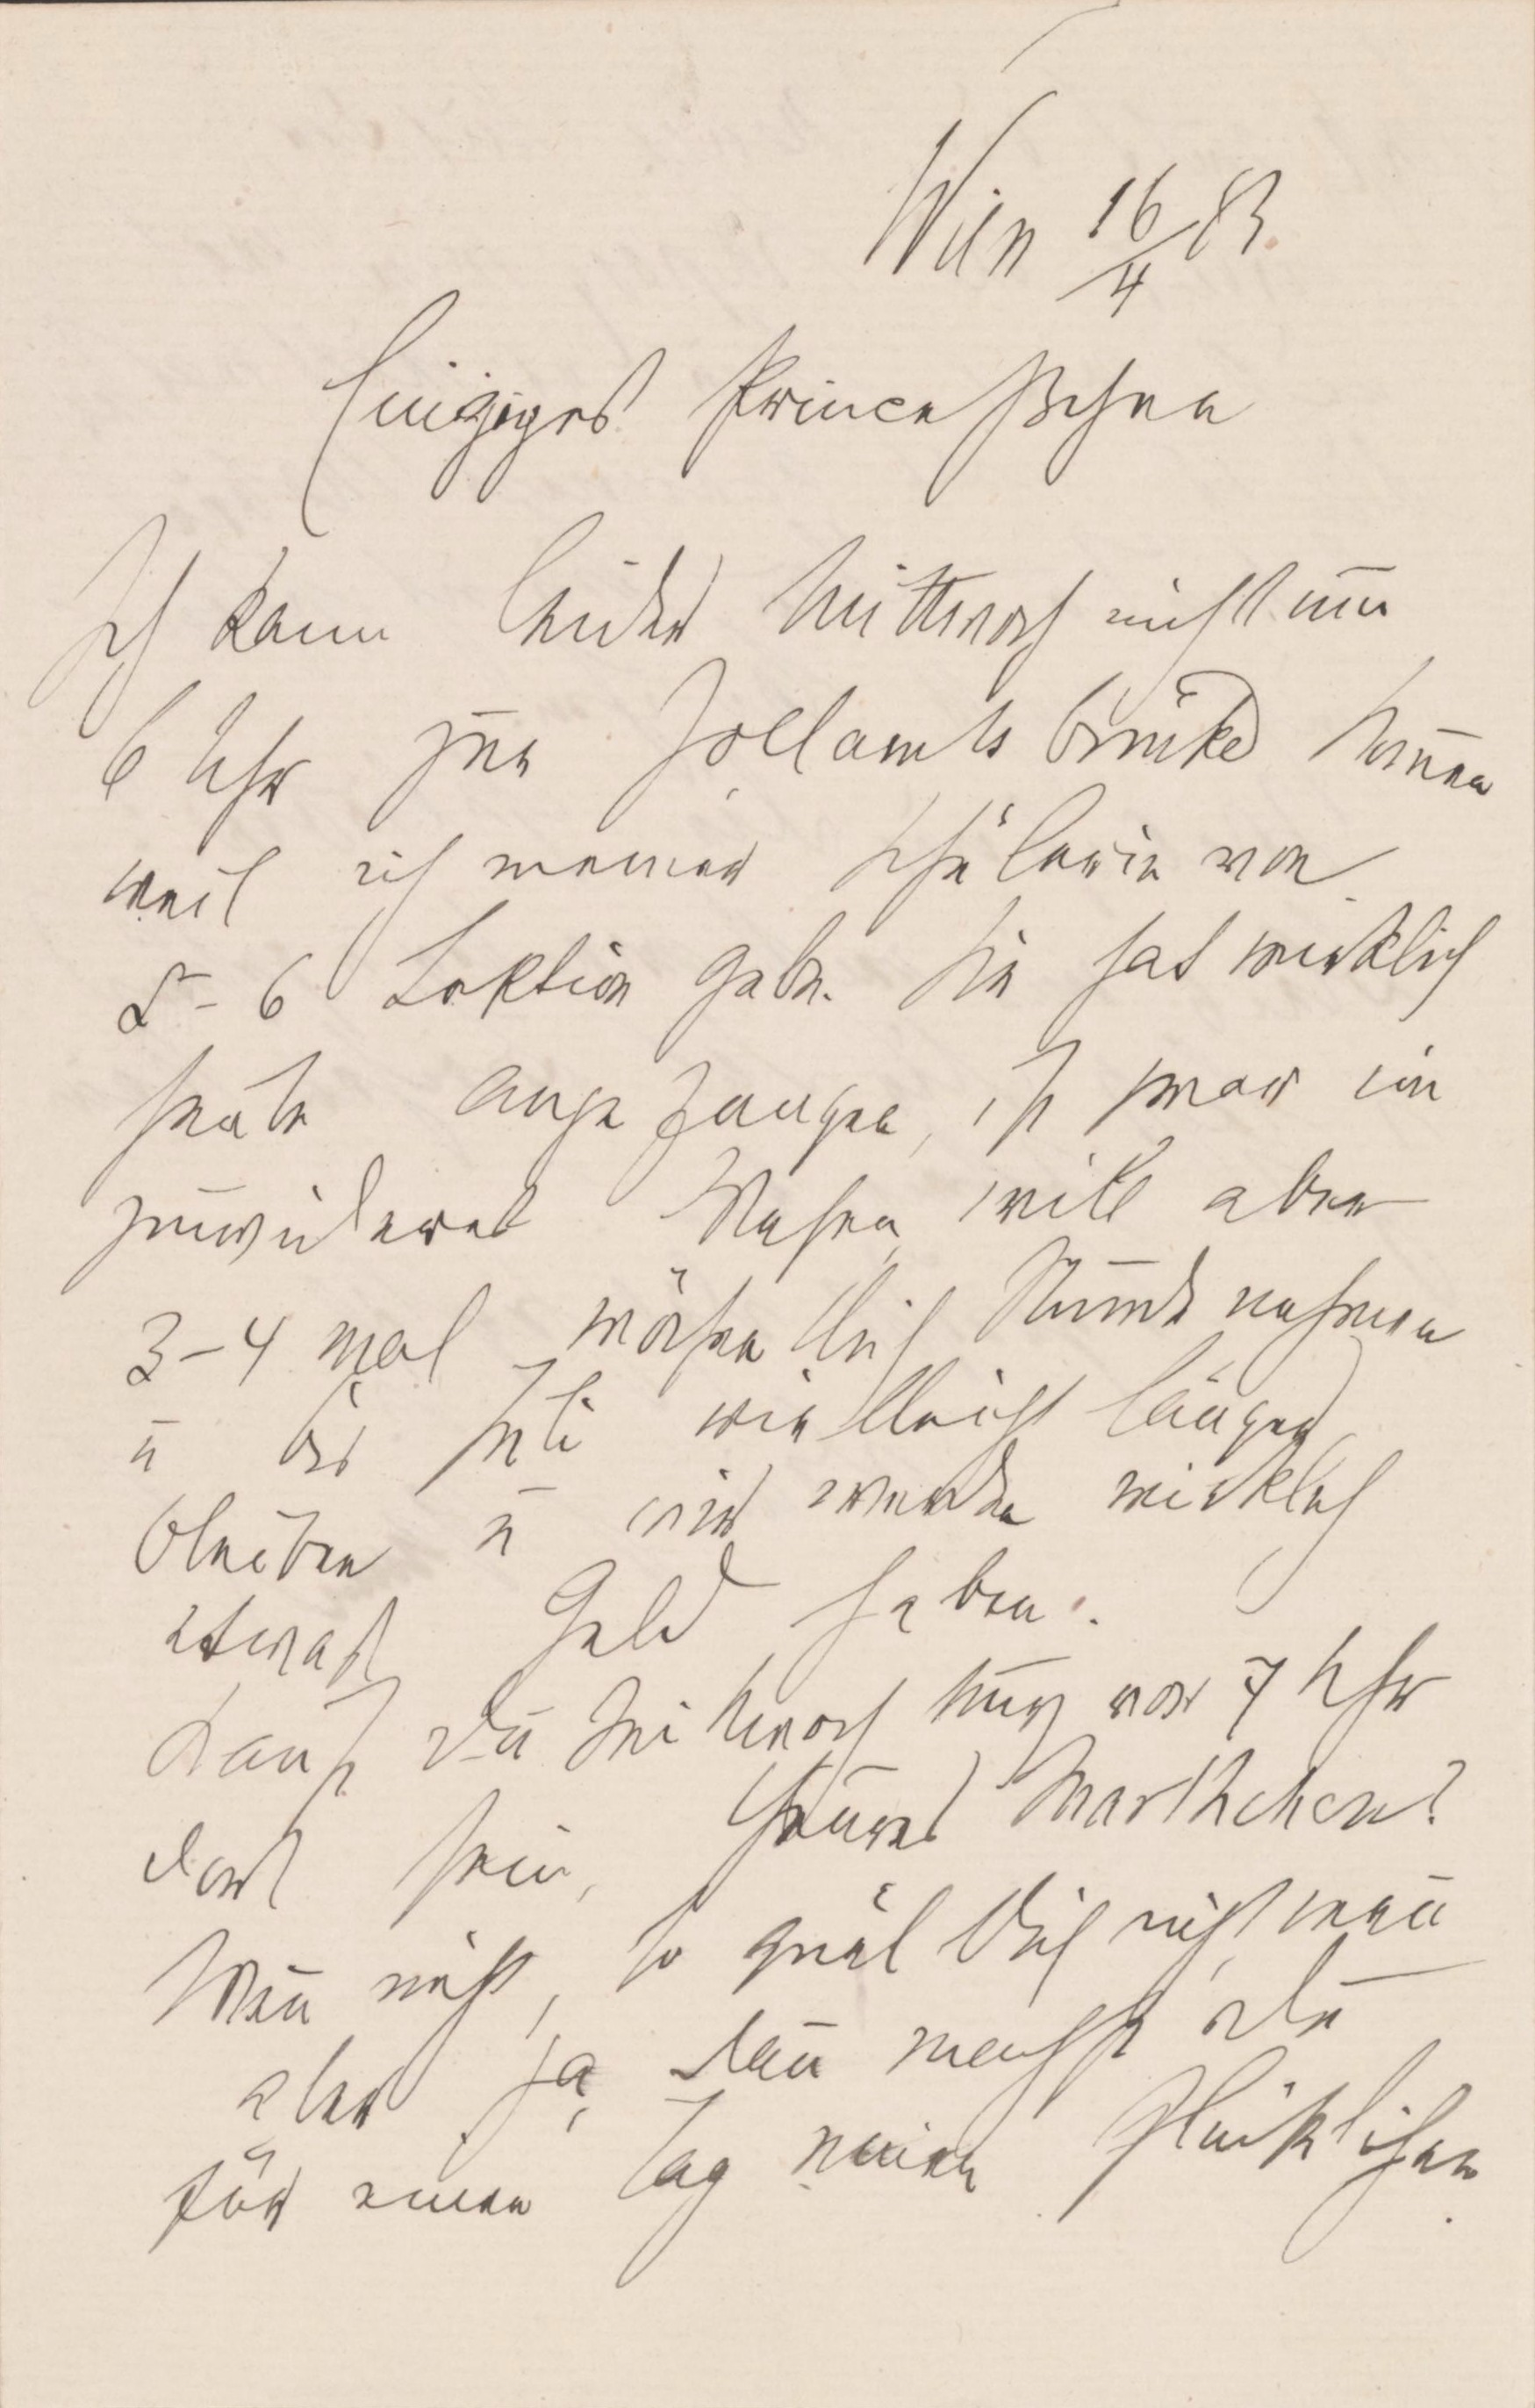 Wien 16/4 83.
Einziges Princeßchen
Ich kann leider Mittwoch nicht um
6 Uhr zur Zollamtsbrücke kommen
weil ich meiner Schülerin von
5–6 Lektion gebe. Sie hat wirklich
heute angefangen, ist zwar ein
zuwideres Wesen, will aber
3–4 mal wöchentlich Stunde nehmen
u bis Juli vielleicht länger
bleiben u wir werden wirklich
etwas Geld haben.
Kannst Du Mittwoch kurz vor 7 Uhr
dort sein, theures Marthchen?
Wenn nicht, so quäl Dich nicht, wenn
aber ja, dann machst Du
für einen Tag glücklichen